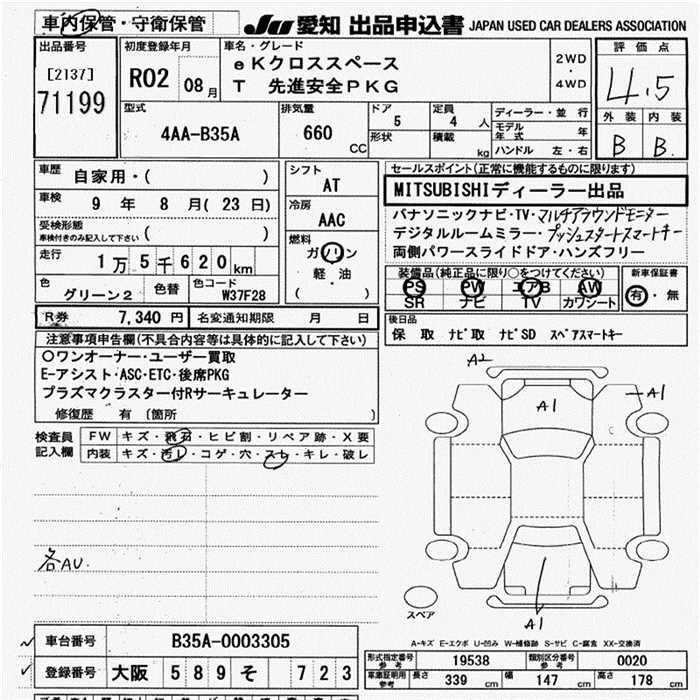 車内保管・守衛保管 JU 愛知 出品申込書 JAPAN USED CAR DEALERS ASSOCIATION
出品番号 [2137] 71199
初度登録年月 R02 08月
車名・グレード eKクロススペース
T 先進安全PKG
2WD・4WD
評価点 4.5
外装 内装
B B
型式 4AA-B35A
排気量 660 CC
ドア 5
形状
定員 4 人
積載 kg
ディーラー・並行
モデル年式 年
ハンドル 左・右
車歴 自家用・( )
車検 9 年 8 月( 23 日)
受検形態 車検付きのみ記入して下さい ( )
走行 1万5千620km
色 グリーン2 色替 色コード W37F28
シフト AT
冷房 AAC
燃料 ガソリン
軽・油
( )
セールスポイント(正常に機能するものに限ります)
MITSUBISHIディーラー出品
パナソニックナビ・TV・マルチアラウンドモニター
デジタルルームミラー・プッシュスタートスマートキー
両側パワースライドドア・ハンズフリー
装備品(純正品に限り○をつけてください)
PS PW エアB AW
SR ナビ TV カワシート
新車保証書
有・無
R券 7,340 円 名変通知期限 月 日
後日品
保 取 ナビ取 ナビSD スペアスマートキー
注意事項申告欄(不具合内容等は具体的に記入して下さい)
○ワンオーナー・ユーザー買取
E-アシスト・ASC・ETC・後席PKG
プラズマクラスター付Rサーキュレーター
修復歴 有 〔箇所 〕
検査員記入欄
FW キズ・飛石・ヒビ割・リペア跡・X要
内装 キズ・汚レ・コゲ・穴・スレ・キレ・破レ
各AU.
A2
A1
A1
A1
スペア
A-キズ E-エクボ U-凹み W-補修跡 S-サビ C-腐食 XX-交換済
車台番号 B35A-0003305
登録番号 大阪 589 そ 723
形式指定番号 参考 19538 類別区分番号 参考 0020
車庫証明用 参考 長さ 339 cm 幅 147 cm 高さ 178 cm